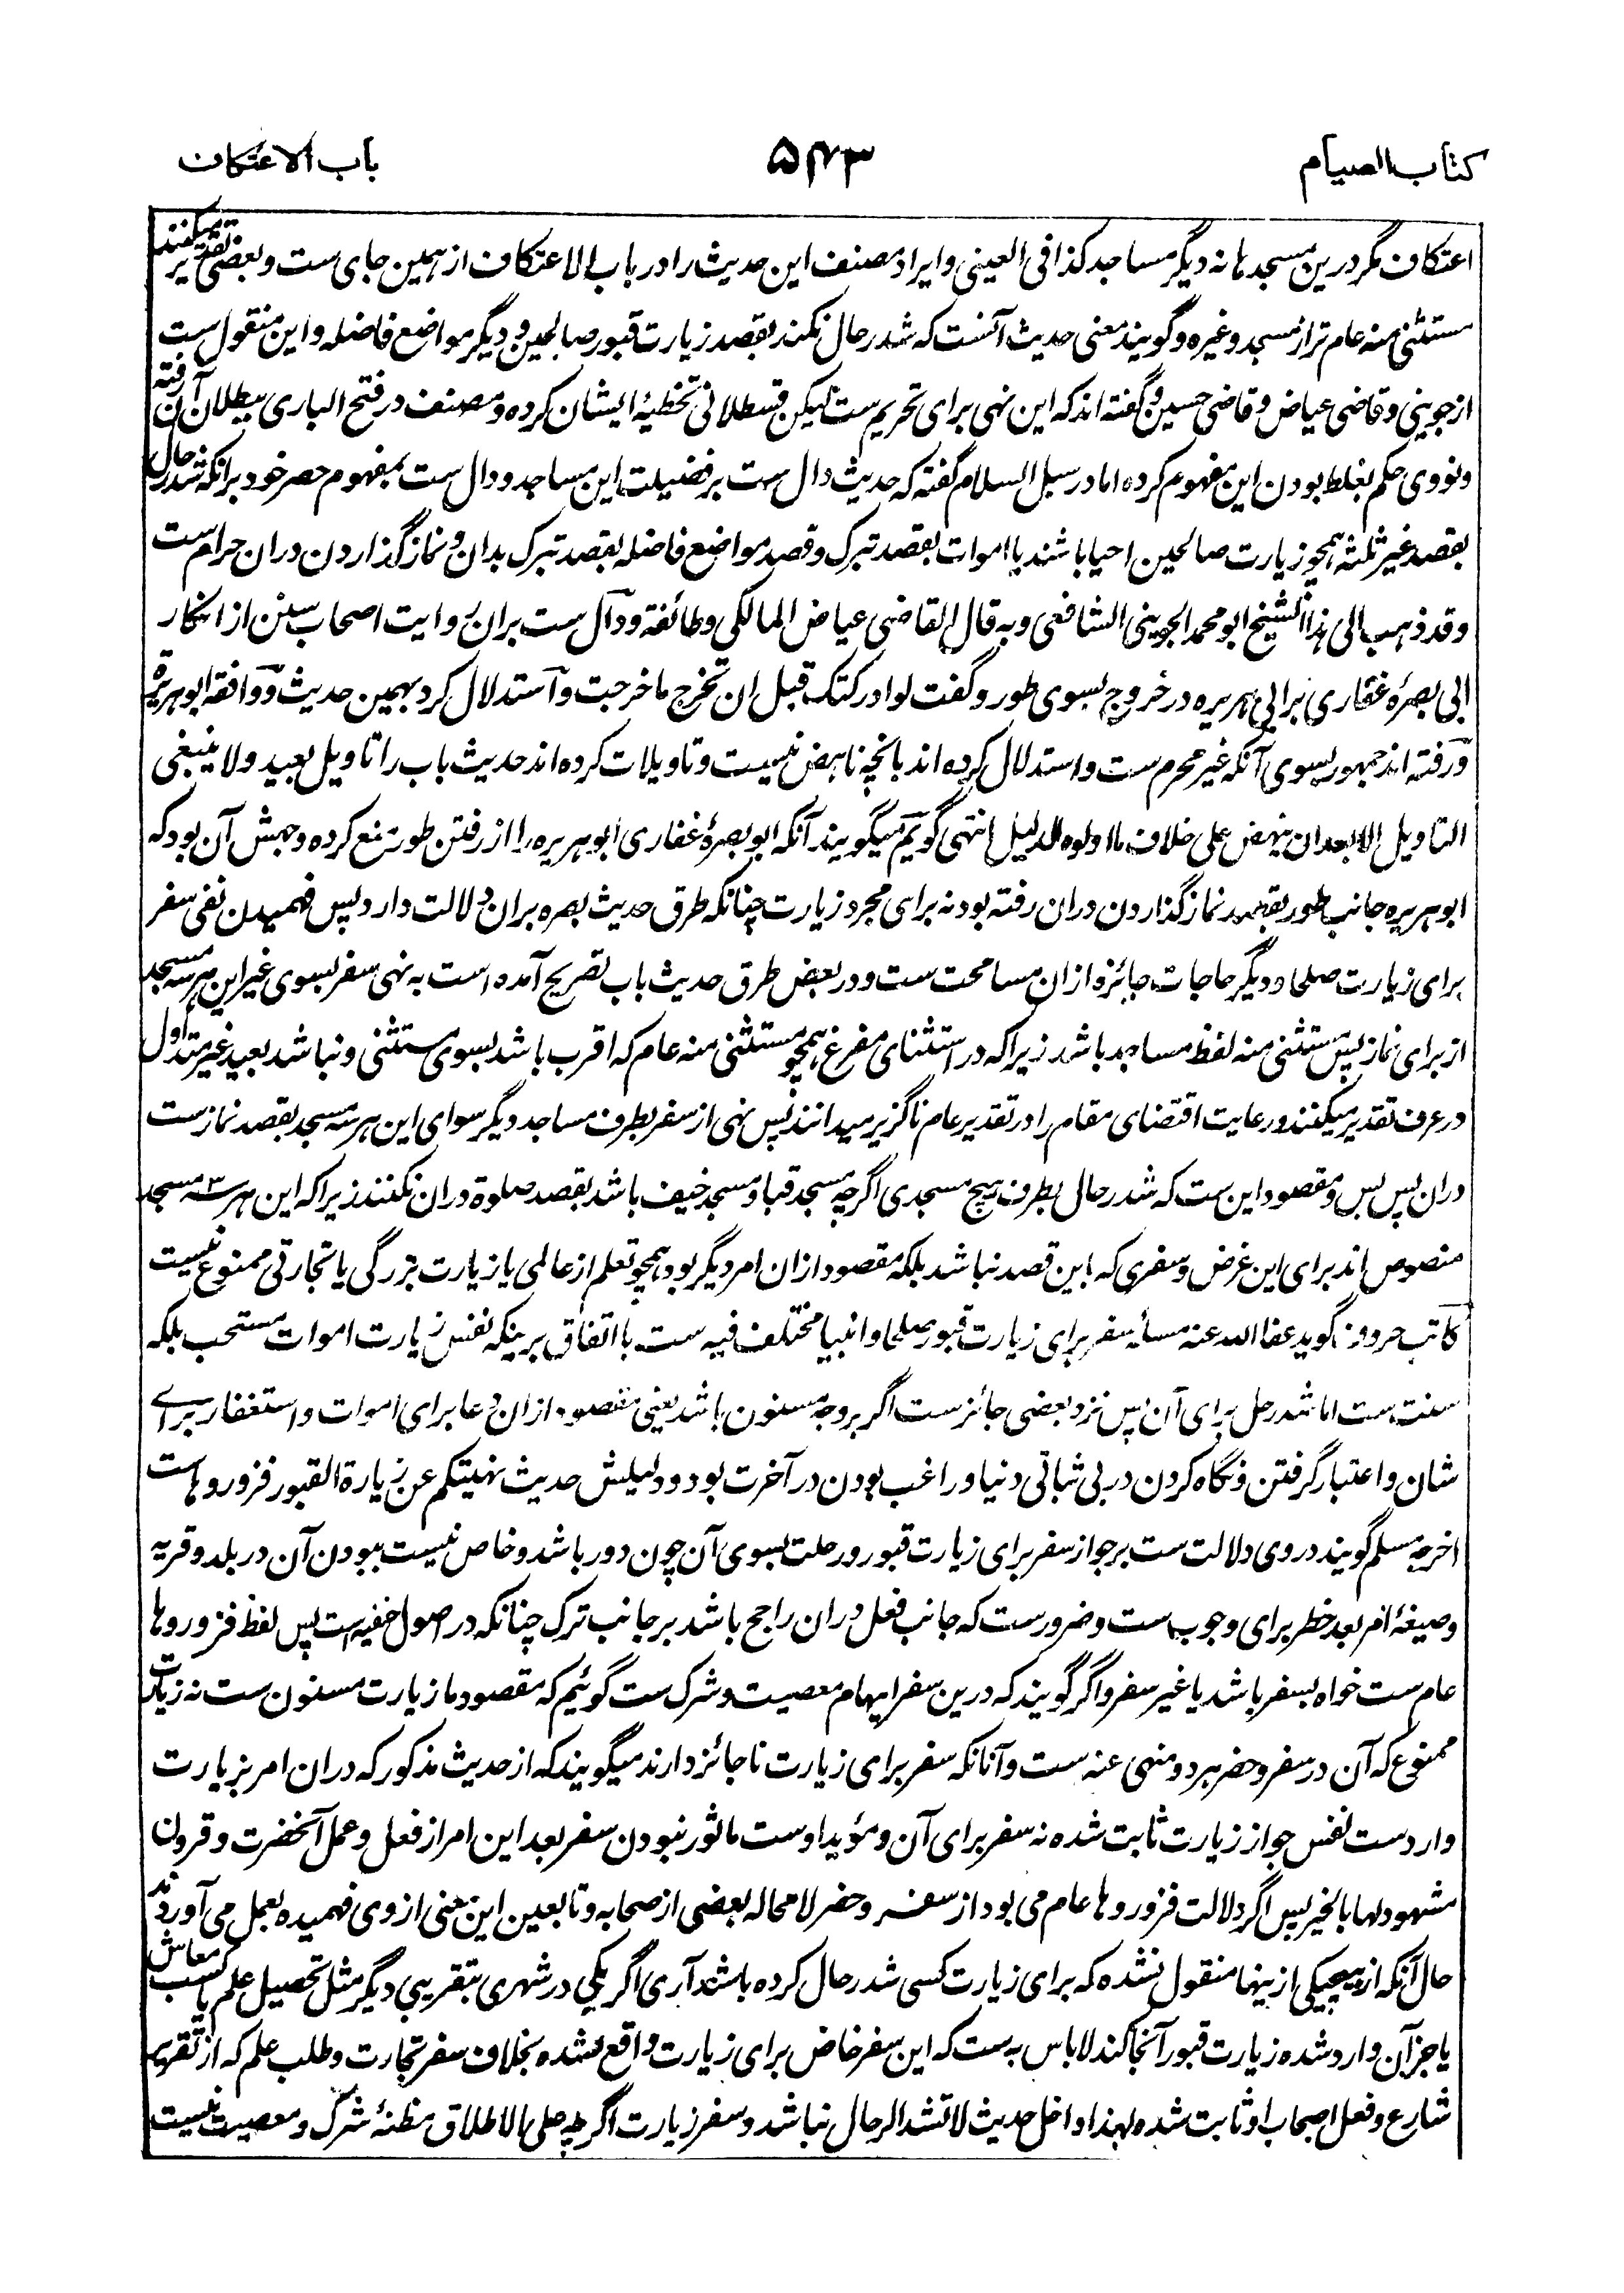 کتاب الصیام ۵۴۳ باب الاعتکاف
اعتکاف مگر درین مسجدها نه دیگر مساجد کذا فی العینی و ایراد مصنف این حدیث را در باب الاعتکاف از همین جای ست و بعضی تقدیر میکنند
مستثنی منه عام تر از مسجد و غیره و گویند معنی حدیث آنست که شد رحال نکند بقصد زیارت قبور صالحین و دیگر مواضع فاضله و این منقول ست
از جوینی و قاضی عیاض و قاضی حسین و گفته اند که این نهی برای تحریم ست لیکن قسطلانی تخطیهٔ ایشان کرده و مصنف در فتح الباری ببطلان آن رفته
و نووی حکم بغلط بودن این مفهوم کرده اما در سبل السلام گفته که حدیث دال ست بر فضیلت این مساجد و دال ست بمفهوم حصر خود برانکه شد رحال
بقصد غیر ثلثه همچو زیارت صالحین احیا باشند یا اموات بقصد تبرک و قصد مواضع فاضله بقصد تبرک بدان و نماز گذاردن دران حرام ست
و قد ذهب الی هذا الشیخ ابو محمد الجوینی الشافعی و به قال القاضی عیاض المالکی و طائفة و دال ست بران روایت اصحاب سنن از انکار
ابی بصرهٔ غفاری بر ابی هریره در خروج بسوی طور و گفت لو ادرکتک قبل ان تخرج ما خرجت و استدلال کرد بهمین حدیث و وافقه ابو هریرة
و رفته اند جمهور بسوی آنکه غیر محرم ست و استدلال کرده اند بانچه ناهض نیست و تاویلات کرده اند حدیث باب را تاویل بعید و لا ینبغی
التاویل الا بعد ان ینهض علی خلاف ما اولوه الدلیل انتهی گویم میگویند آنکه ابو بصرهٔ غفاری ابو هریره را از رفتن طور منع کرده وجهش آن بود که
ابو هریره جانب طور بقصد نماز گذاردن دران رفته بود نه برای مجرد زیارت چنانکه طرق حدیث بصره بران دلالت دارد پس فهمیدن نفی سفر
برای زیارت صلحا و دیگر حاجات جائزه ازان مسامحت ست و در بعض طرق حدیث باب تصریح آمده است به نهی سفر بسوی غیر این هر سه مسجد
از برای نماز پس مستثنی منه لفظ مساجد باشد زیرا که در استثنای مفرغ همچو مستثنی منه عام که اقرب باشد بسوی مستثنی و نباشد بعید غیر متداول
در عرف تقدیر میکنند و رعایت اقتضای مقام را در تقدیر عام ناگزیر میدانند پس نهی از سفر بطرف مساجد دیگر سوای این هر سه مسجد بقصد نماز ست
دران پس بس و مقصود این ست که شد رحال بطرف هیچ مسجدی اگرچه مسجد قبا و مسجد خیف باشد بقصد صلوة دران نکنند زیرا که این هر سه ۳ مسجد
منصوص اند برای این غرض و سفری که باین قصد نباشد بلکه مقصود ازان امر دیگر بود همچو تعلم از عالمی یا زیارت بزرگی یا تجارتی ممنوع نیست
کاتب حروف گوید عفا الله عنه مسأله سفر برای زیارت قبور صلحا و انبیا مختلف فیه ست با اتفاق برینکه نفس زیارت اموات مستحب بلکه
سنت ست اما شد رحل برای آن پس نزد بعضی جائز ست اگر بروجه مسنون باشد یعنی مقصود ازان دعا برای اموات و استغفار برای
شان و اعتبار گرفتن و نگاه کردن در بی ثباتی دنیا و راغب بودن در آخرت بود و دلیلش حدیث نهیتکم عن زیارة القبور فزوروها ست
اخرجه مسلم گویند در وی دلالت ست بر جواز سفر برای زیارت قبور و رحلت بسوی آن چون دور باشد و خاص نیست ببودن آن در بلد و قریه
و صیغهٔ امر بعد حظر برای وجوب ست و ضرورست که جانب فعل دران راجح باشد بر جانب ترک چنانکه در اصول حنفیه است پس لفظ فزوروها
عام ست خواه بسفر باشد یا غیر سفر و اگر گویند که درین سفر ایهام معصیت و شرک ست گوئیم که مقصود ما زیارت مسنون ست نه زیارت
ممنوع که آن در سفر و حضر هر دو منهی عنه ست و آنانکه سفر برای زیارت ناجائز دارند میگویند که از حدیث مذکور که دران امر بزیارت
وارد ست نفس جواز زیارت ثابت شده نه سفر برای آن و مؤید اوست ماثور نبودن سفر بعد این امر از فعل و عمل آنحضرت و قرون
مشهود لها بالخیر پس اگر دلالت فزوروها عام می بود از سفر و حضر لا محاله بعضی از صحابه و تابعین این معنی از وی فهمیده بعمل می آوردند
حال آنکه از هیچیکی ازینها منقول نشده که برای زیارت کسی شد رحال کرده باشد آری اگر یکی در شهری بتقریبی دیگر مثل تحصیل علم یا کسب معاش
یا جز آن وارد شده زیارت قبور آنجا کند لا باس به ست که این سفر خاص برای زیارت واقع نشده بخلاف سفر تجارت و طلب علم که از تقریر
شارع و فعل اصحاب او ثابت شده لهذا داخل حدیث لا تشد الرحال نباشد و سفر زیارت اگرچه علی الاطلاق مظنهٔ شرک و معصیت نیست